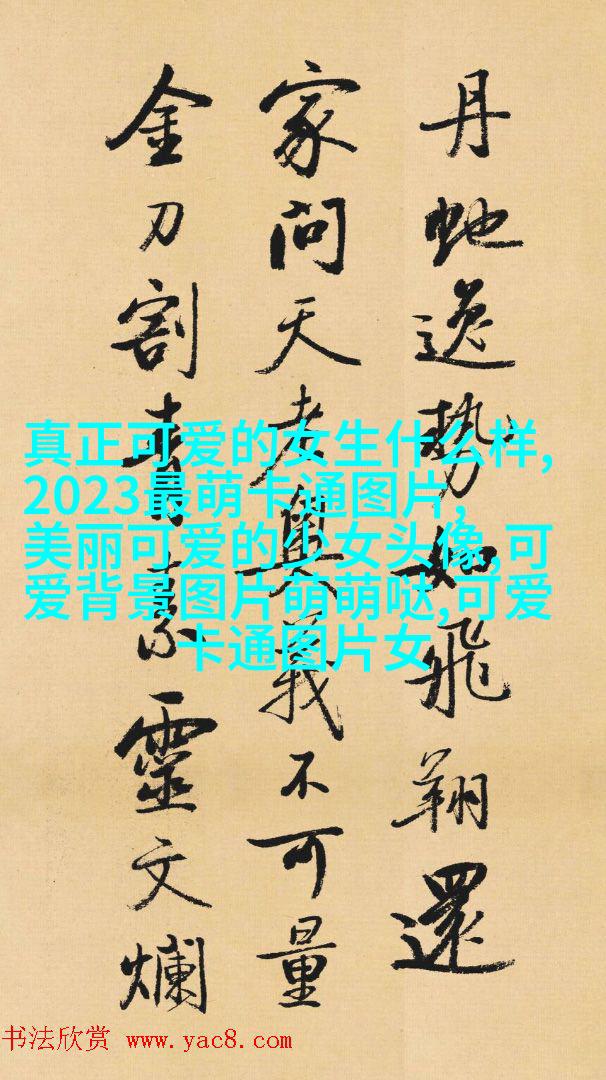 丹虵逸勢如飛翔還
家問天老奥義不可量
金刀割青素靈文爛
真正可爱的女生什么样,
2023最萌卡通图片,
美丽可爱的少女头像,可
爱背景图片萌萌哒,可爱
卡通图片女
书法欣赏 www.yac8.com